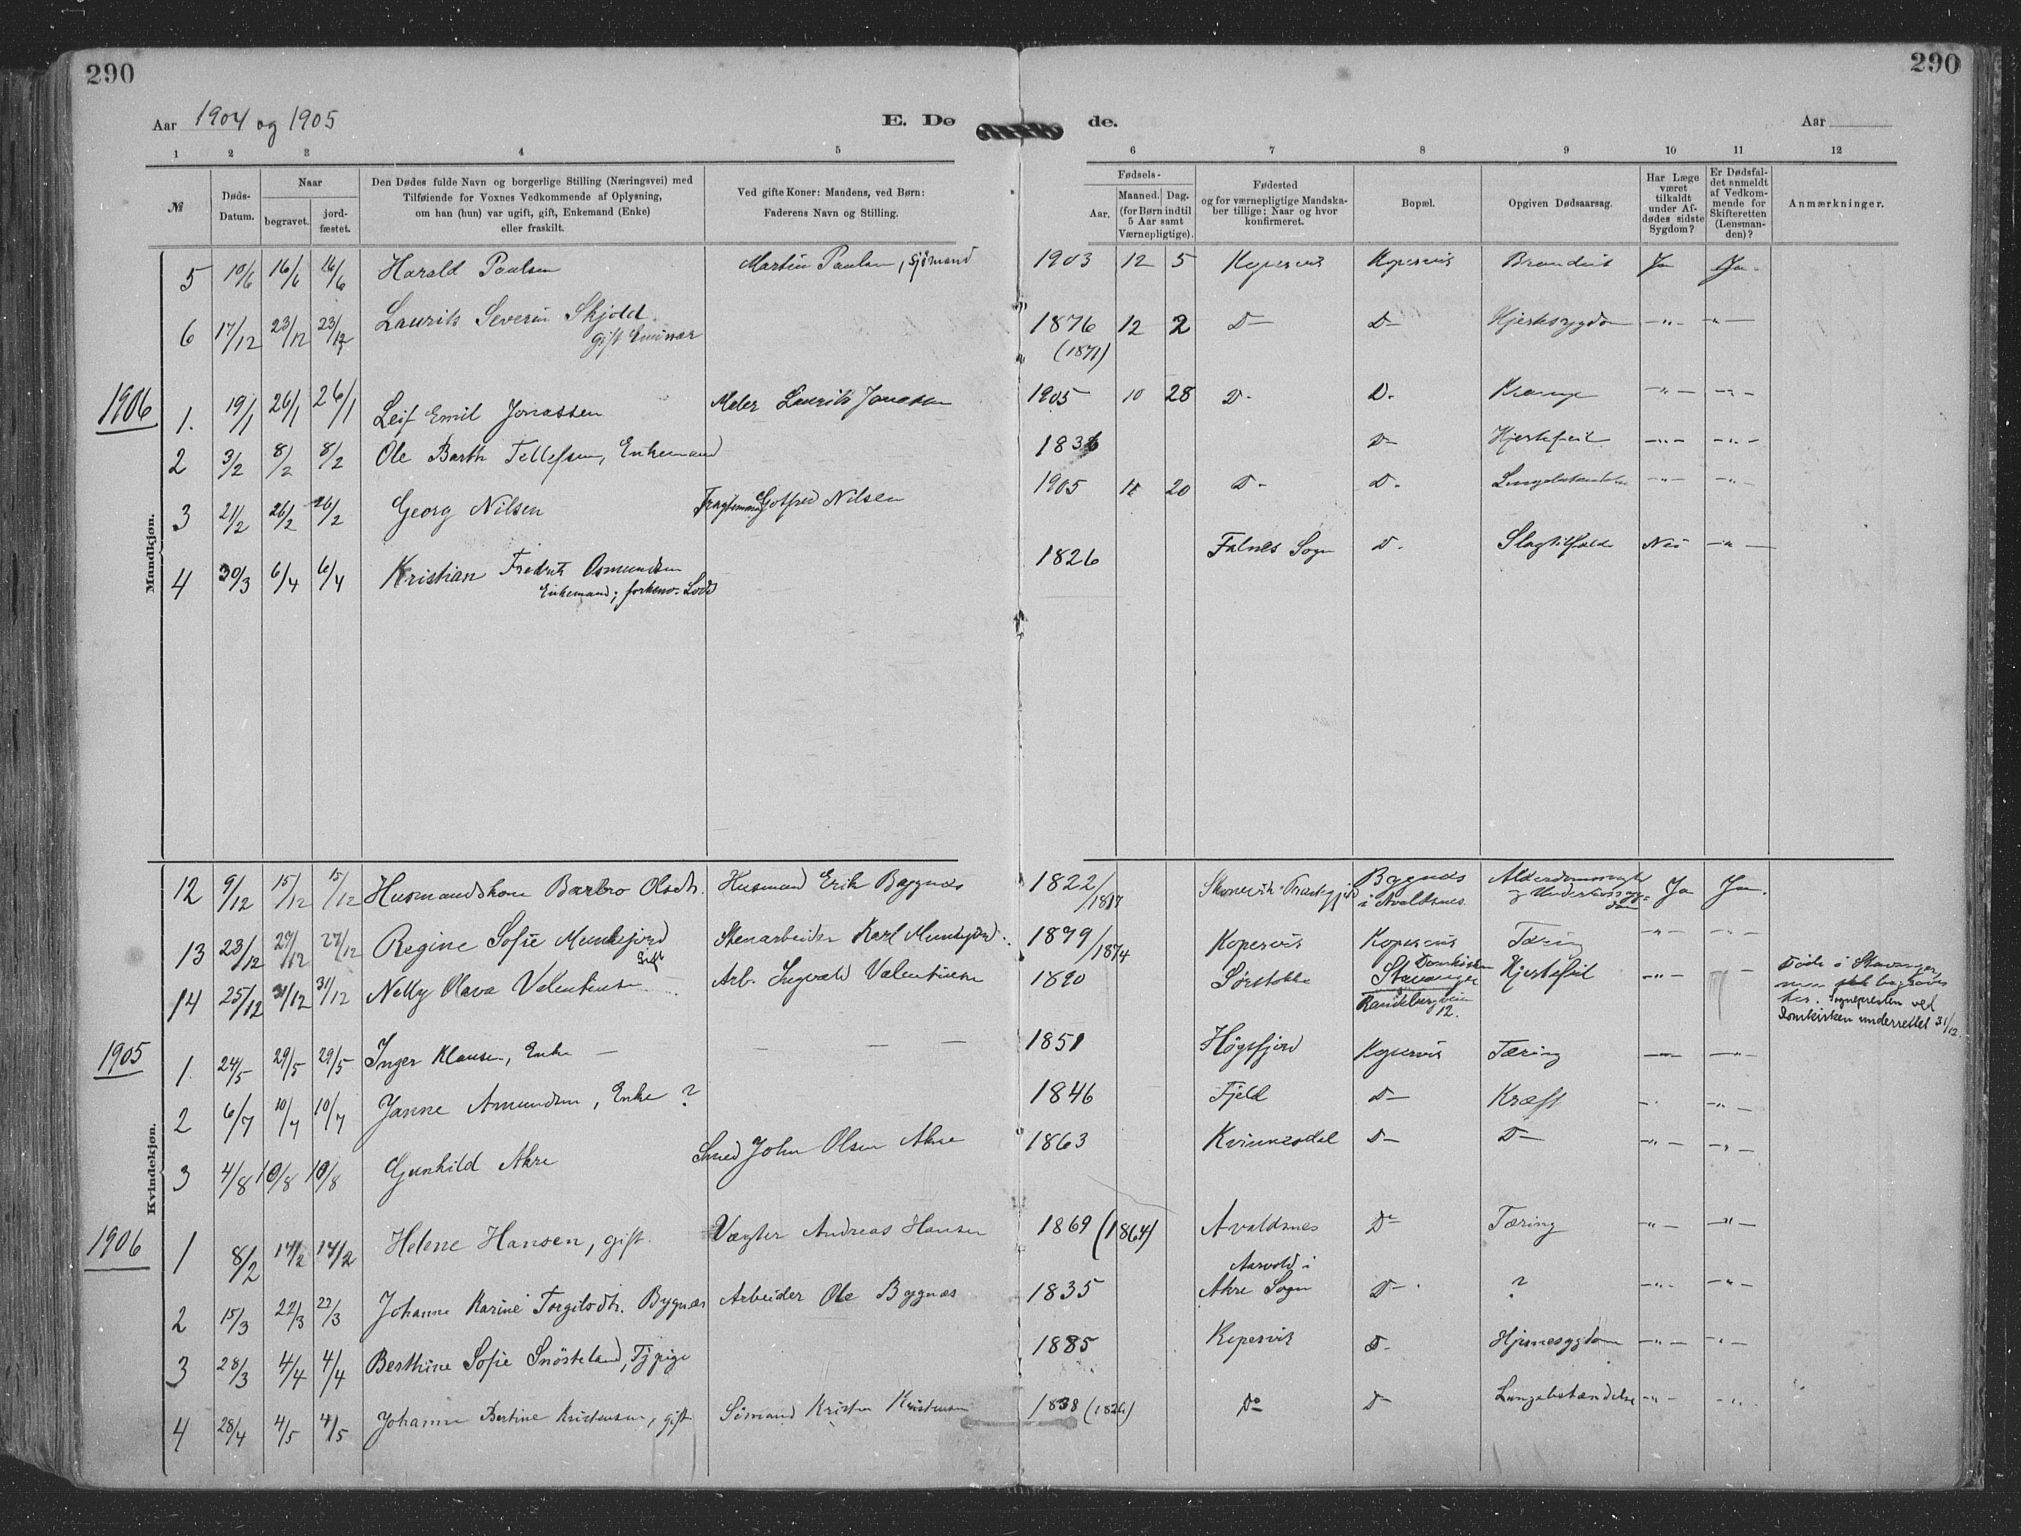 290
290
Aar 1904 og 1905
E. Dø
de.
Aar
1 2 3 4 5 6 7 8 9 10 11 12
№
Døds-
Datum.
Naar
begravet.
jord-
fæstet.
Den Dødes fulde Navn og borgerlige Stilling (Næringsvei) med
Tilføiende for Voxnes Vedkommende af Oplysning,
om han (hun) var ugift, gift, Enkemand (Enke)
eller fraskilt.
Ved gifte Koner: Mandens, ved Børn:
Faderens Navn og Stilling.
Fødsels-
Aar.
Maaned.
Dag.
(for Børn indtil
5 Aar samt
Værnepligtige).
Fødested
og for værnepligtige Mandska-
ber tillige: Naar og hvor
konfirmeret.
Bopæl.
Opgiven Dødsaarsag.
Har Læge
været
tilkaldt
under Af-
dødes sidste
Sygdom?
Er Dødsfal-
det anmeldt
af Vedkom-
mende for
Skifteretten
(Lensman-
den)?
Anmærkninger.
Mandkjøn.
5 10/6 16/6 16/6 Harald Paulsen Martin Paulsen, Sjömand 1903 12 5 Kopervik Kopervik Ja Ja.
6 17/12 23/12 23/12 Laurits Severin Skjold 1876 12 2 D— D— Hjertesygdom -"- -"-
gift
(1871)
1906
1. 19/1 26/1 26/1 Leif Emil Jonassen Maler Laurits Jonassen 1905 10 28 D- D. Krampe -"- -"-
2 3/2 8/2 8/2 Ole Barth Tellefsen, Enkemand 1836 D- Hjertefeil -"- -"-
3 21/2 26/2 26/2 Georg Nilsen Fragtemand Gotfred Nilsen 1905 11 20 D- D- Lungebetændelse -"- -"-
4 30/3 6/4 6/4 Kristian Fredrik Osmundsen 1826 Falnes Sogn D- Slagtilfælde Nei -"-
Enkemand; forhenv. Lods
Kvindekjøn.
12 9/12 15/12 15/12 Husmandskone Barbro Olsdtr. Husmand Erik Bygnes 1822/1817 Skonevik Præstegjeld Bygnes Alderdomssvaghed Ja Ja.
i Avaldsnes.
13 23/12 27/12 27/12 Regine Sofie Munkejord Stenarbeider Karl Munkejord 1879/1874 Kopervik Kopervik Tæring -"- -"-
Gift
14 25/12 31/12 31/12 Nelly Olava Valentinsen Arb. Ingvald Valentinsen 1890 Sørstokke Stavanger Hjertefeil -"- -
Domkirken
Randabergveien
12.
Døde i Stavanger,
men skal begraves
her. Sognepresten ved
Domkirken underrettet 31/12.
1905
1. 24/5 29/5 29/5 Inger Klausen, Enke — — — — 1851 Høgsfjord Kopervik Tæring -"- -"-
2 6/7 10/7 10/7 Janne Amundsen, Enke ? 1846 Fjeld D— Kræft -"- -"-
3 4/8 10/8 10/8 Gunhild Akre Smed John Olsen Akre 1863 Kvinnesdal D— D— -"- -"-
1906
1 8/2 14/2 14/2 Helene Hansen, gift Vægter Andreas Hansen 1869 (1864) Avaldsnes D— Tæring -"- -"-
2 15/3 22/3 22/3 Johanne Karine Torgilsdtr. Bygnes Arbeider Ole Bygnes 1835 Akre Sogn D— ? -"- -"-
3 28/3 4/4 4/4 Berthine Sofie Snösteland, Tjpige 1885 Kopervik D- Hjernesygdom -"- -"-
4 28/4 4/5 4/5 Johanne Bertine Kristensen, gift Sömand Kristen Kristensen 1838 (1826) Do D Lungebetændelse -"- -"-